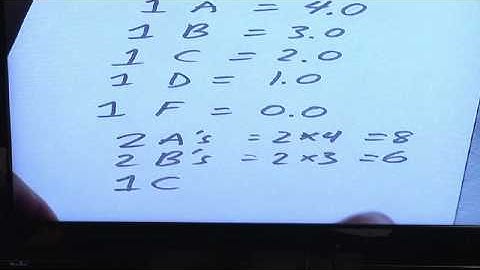 1 A = 4.0
1 B = 3.0
1 C = 2.0
1 D = 1.0
1 F = 0.0
2 A's = 2×4 = 8
2 B's = 2×3 = 6
1 C